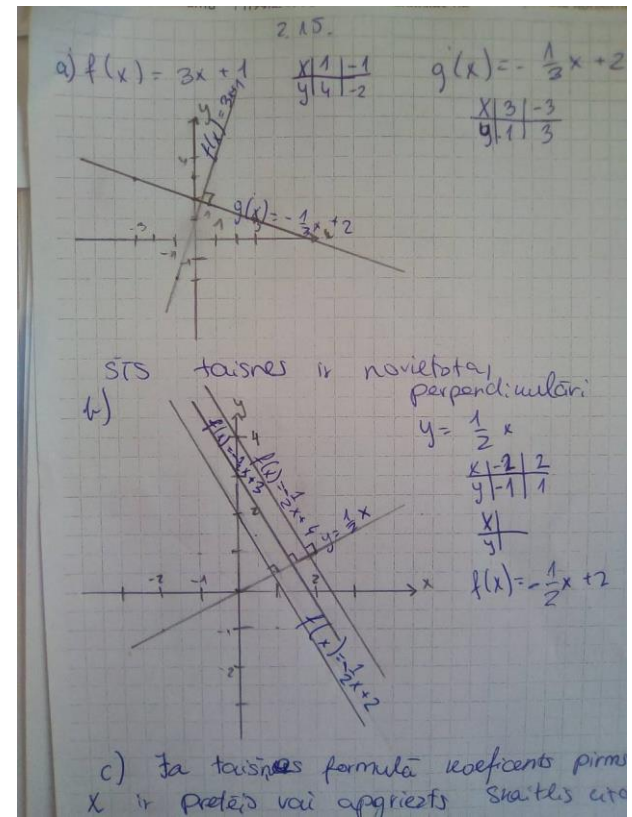 2.15.
a) f(x) = 3x + 1
x | 1 | -1
y | 4 | -2
g(x) = - 1/3 x + 2
x | 3 | -3
y | 1 | 3
y
f(x) = 3x+1
4
1
g(x) = - 1/3 x + 2
-3
-1
1
3
x
-1
ŠĪS taisnes ir novietotas
perpendikulāri
b)
y
4
f(x)=-1/2x+4
2
y=1/2x
-2
-1
2
x
-1
-2
f(x)=-1/2x+2
y = 1/2 x
x | -2 | 2
y | -1 | 1
x |
y |
f(x)=-1/2x+2
c) Ja taisnes formulā koeficents pirms
x ir pretējs vai apgriezts skaitlis